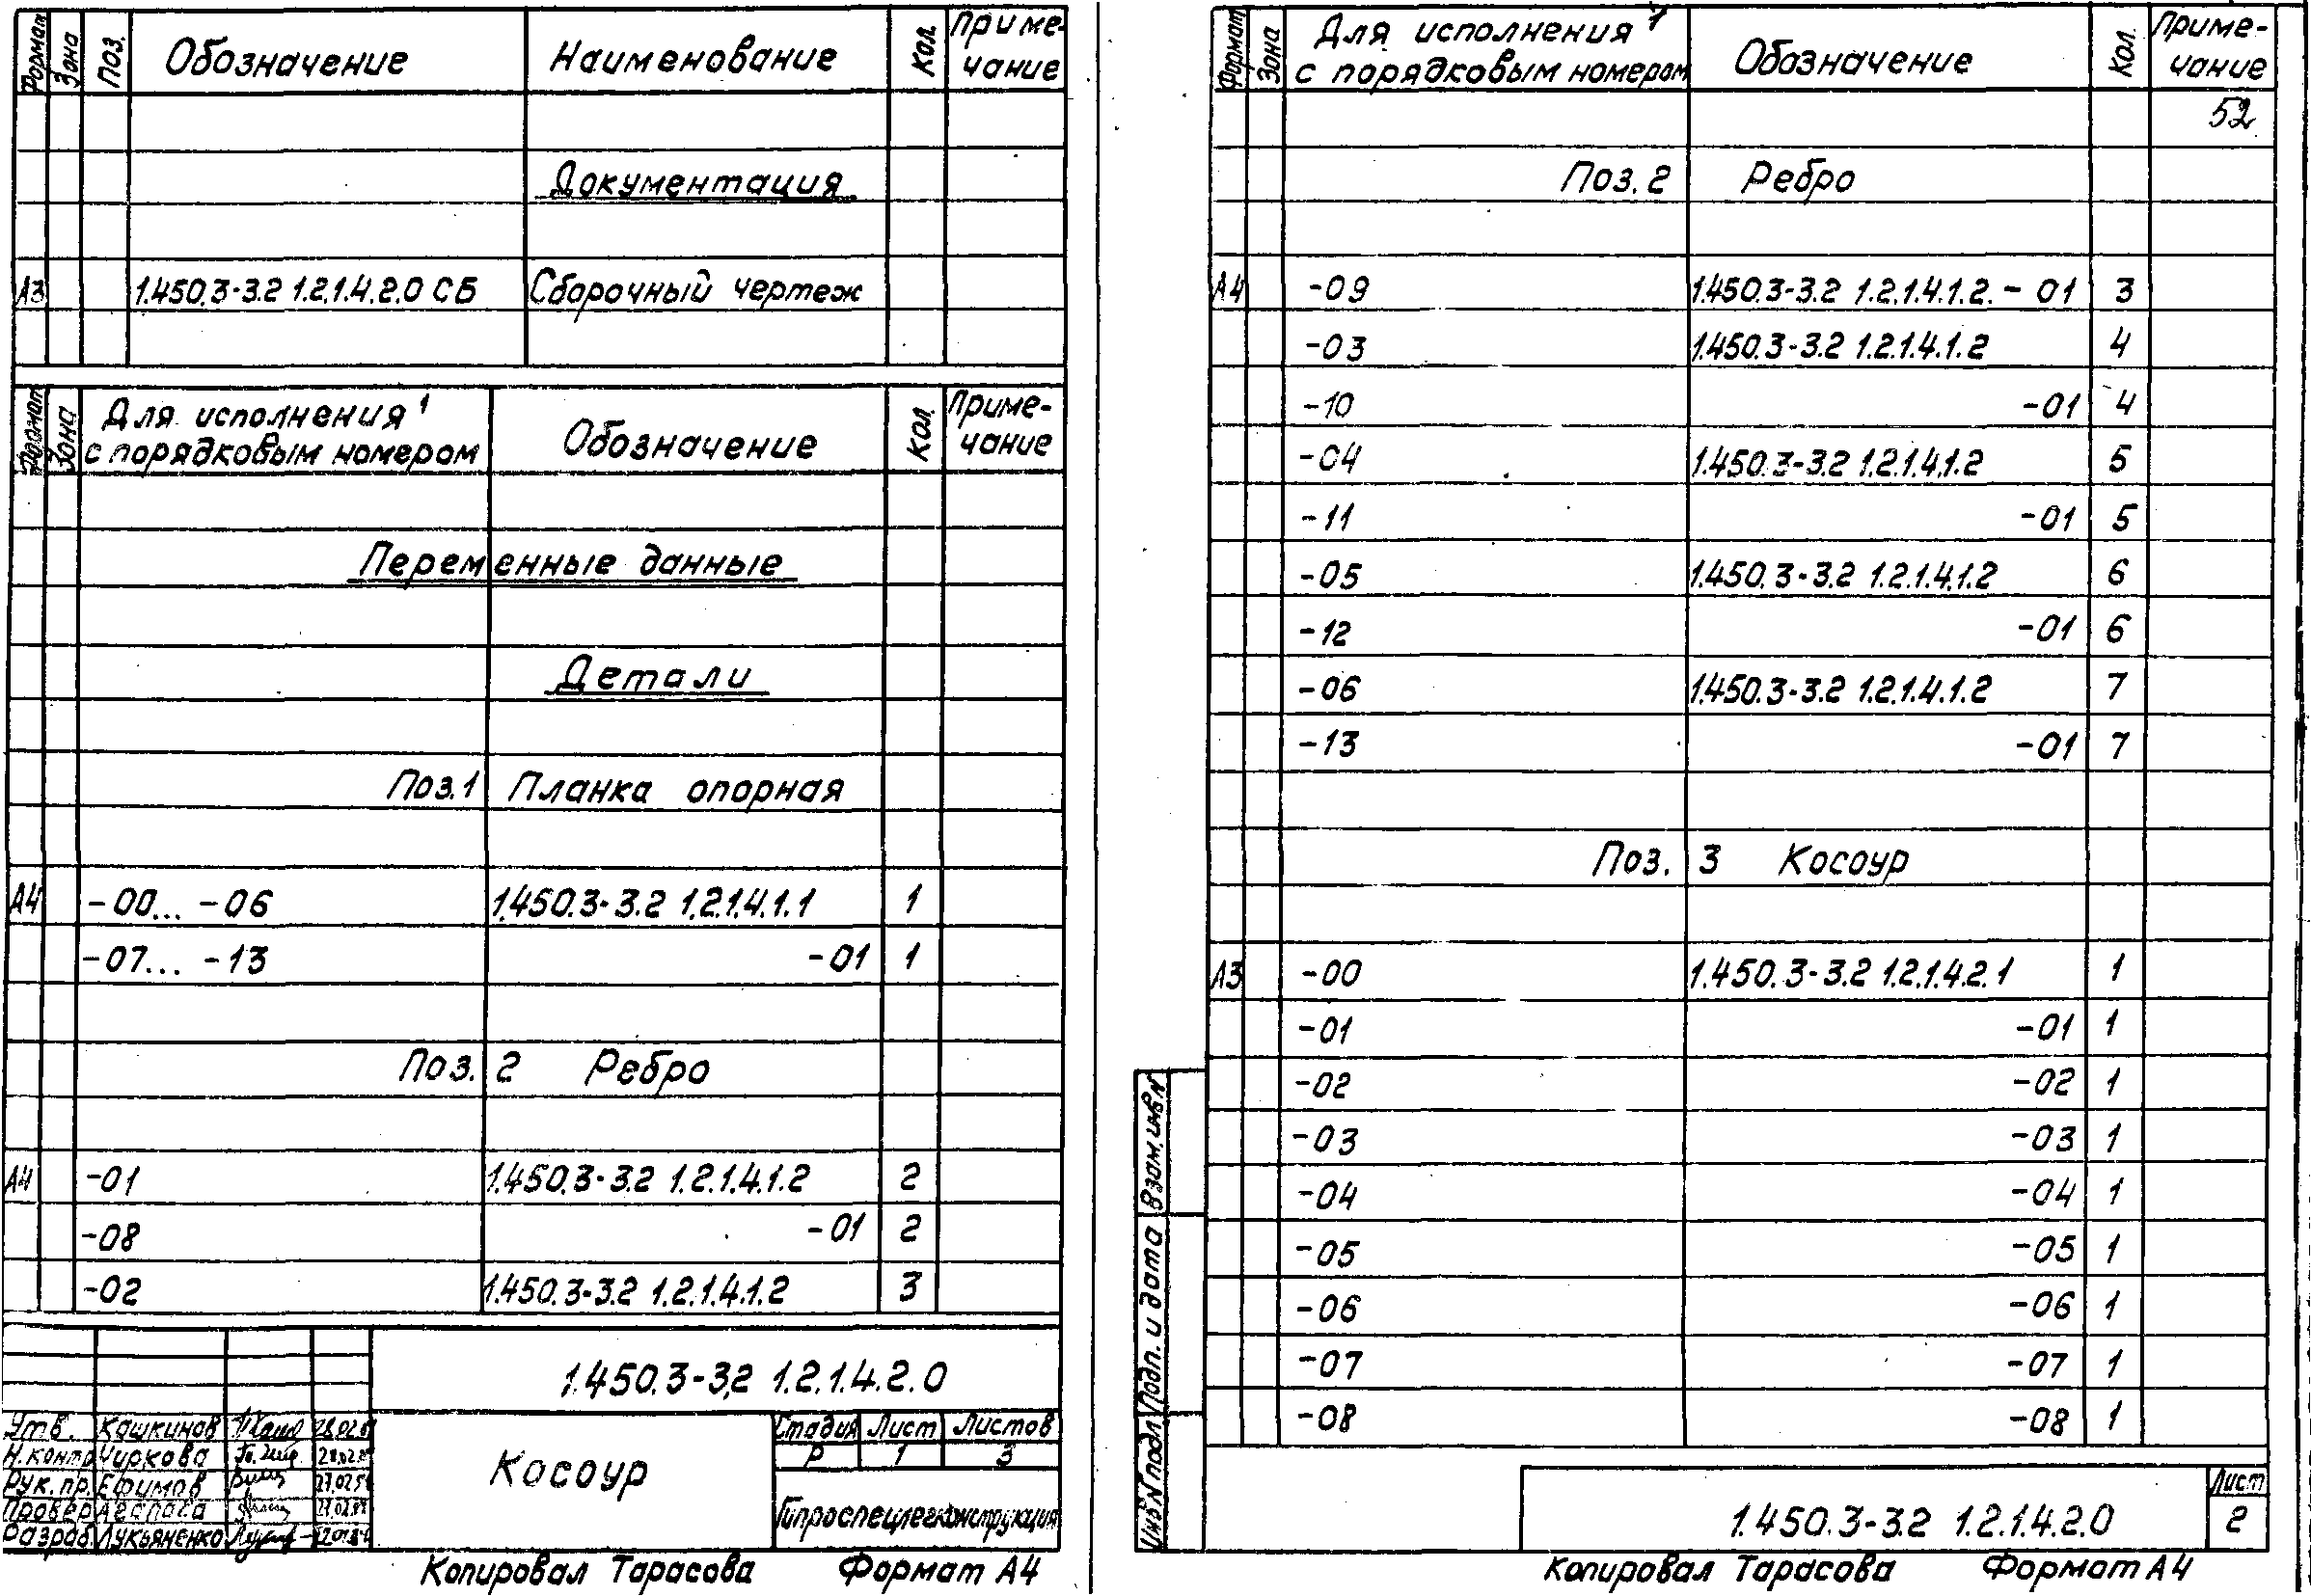 Формат Зона Поз. Обозначение Наименование Кол. Приме-
чание
Документация
А3 1.450.3-3.2 1.2.1.4.2.0 СБ Сборочный чертеж
Формат Зона Для исполнения 1
с порядковым номером Обозначение Кол. Приме-
чание
Переменные данные
Детали
Поз.1 Планка опорная
А4 -00... -06 1.450.3-3.2 1.2.1.4.1.1 1
-07... -13 -01 1
Поз. 2 Ребро
А4 -01 1.450.3-3.2 1.2.1.4.1.2 2
-08 -01 2
-02 1.450.3-3.2 1.2.1.4.1.2 3
1.450.3-3.2 1.2.1.4.2.0
Утв. Кашкинов
Н.контр Чиркова
Рук.пр. Ефимов
Провер Агапова
Разраб. Лукьяненко
Косоур
Стадия Лист Листов
Р 1 3
Гипроспецлегконструкция
Копировал Тарасова Формат А4
Формат Зона Для исполнения 1
с порядковым номером Обозначение Кол. Приме-
чание
52
Поз. 2 Ребро
А4 -09 1.450.3-3.2 1.2.1.4.1.2. - 01 3
-03 1.450.3-3.2 1.2.1.4.1.2 4
-10 -01 4
-04 1.450.3-3.2 1.2.1.4.1.2 5
-11 -01 5
-05 1.450.3-3.2 1.2.1.4.1.2 6
-12 -01 6
-06 1.450.3-3.2 1.2.1.4.1.2 7
-13 -01 7
Поз. 3 Косоур
А3 -00 1.450.3-3.2 1.2.1.4.2.1 1
-01 -01 1
-02 -02 1
-03 -03 1
-04 -04 1
-05 -05 1
-06 -06 1
-07 -07 1
-08 -08 1
Инв.№ подл. Подп. и дата Взам.инв.№
1.450.3-3.2 1.2.1.4.2.0
Лист
2
Копировал Тарасова Формат А4